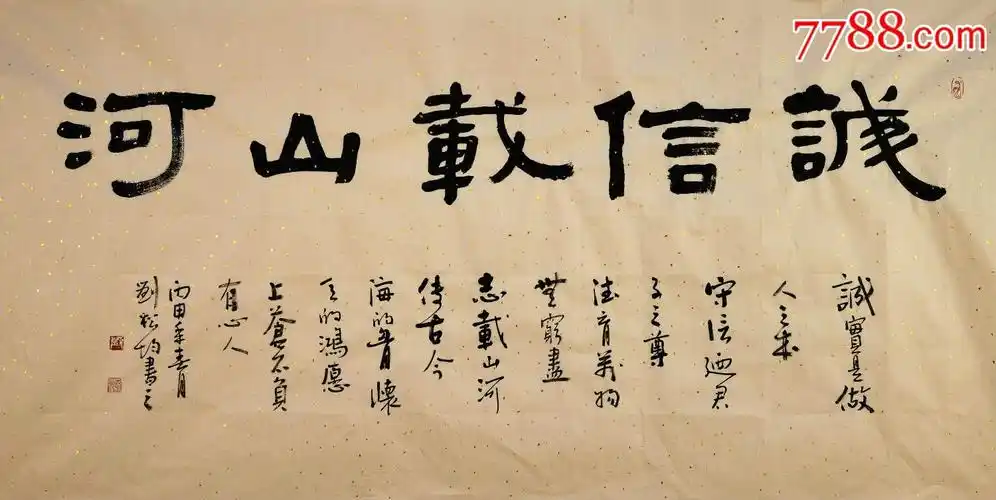 7788.com
誠信載山河
誠實是做
人之本
守信迺君
子之尊
德育萬物
無窮盡
志載山河
傳古今
海的胷懷
天的鴻德
上蒼不負
有心人
丙申年春月
劉松均書之